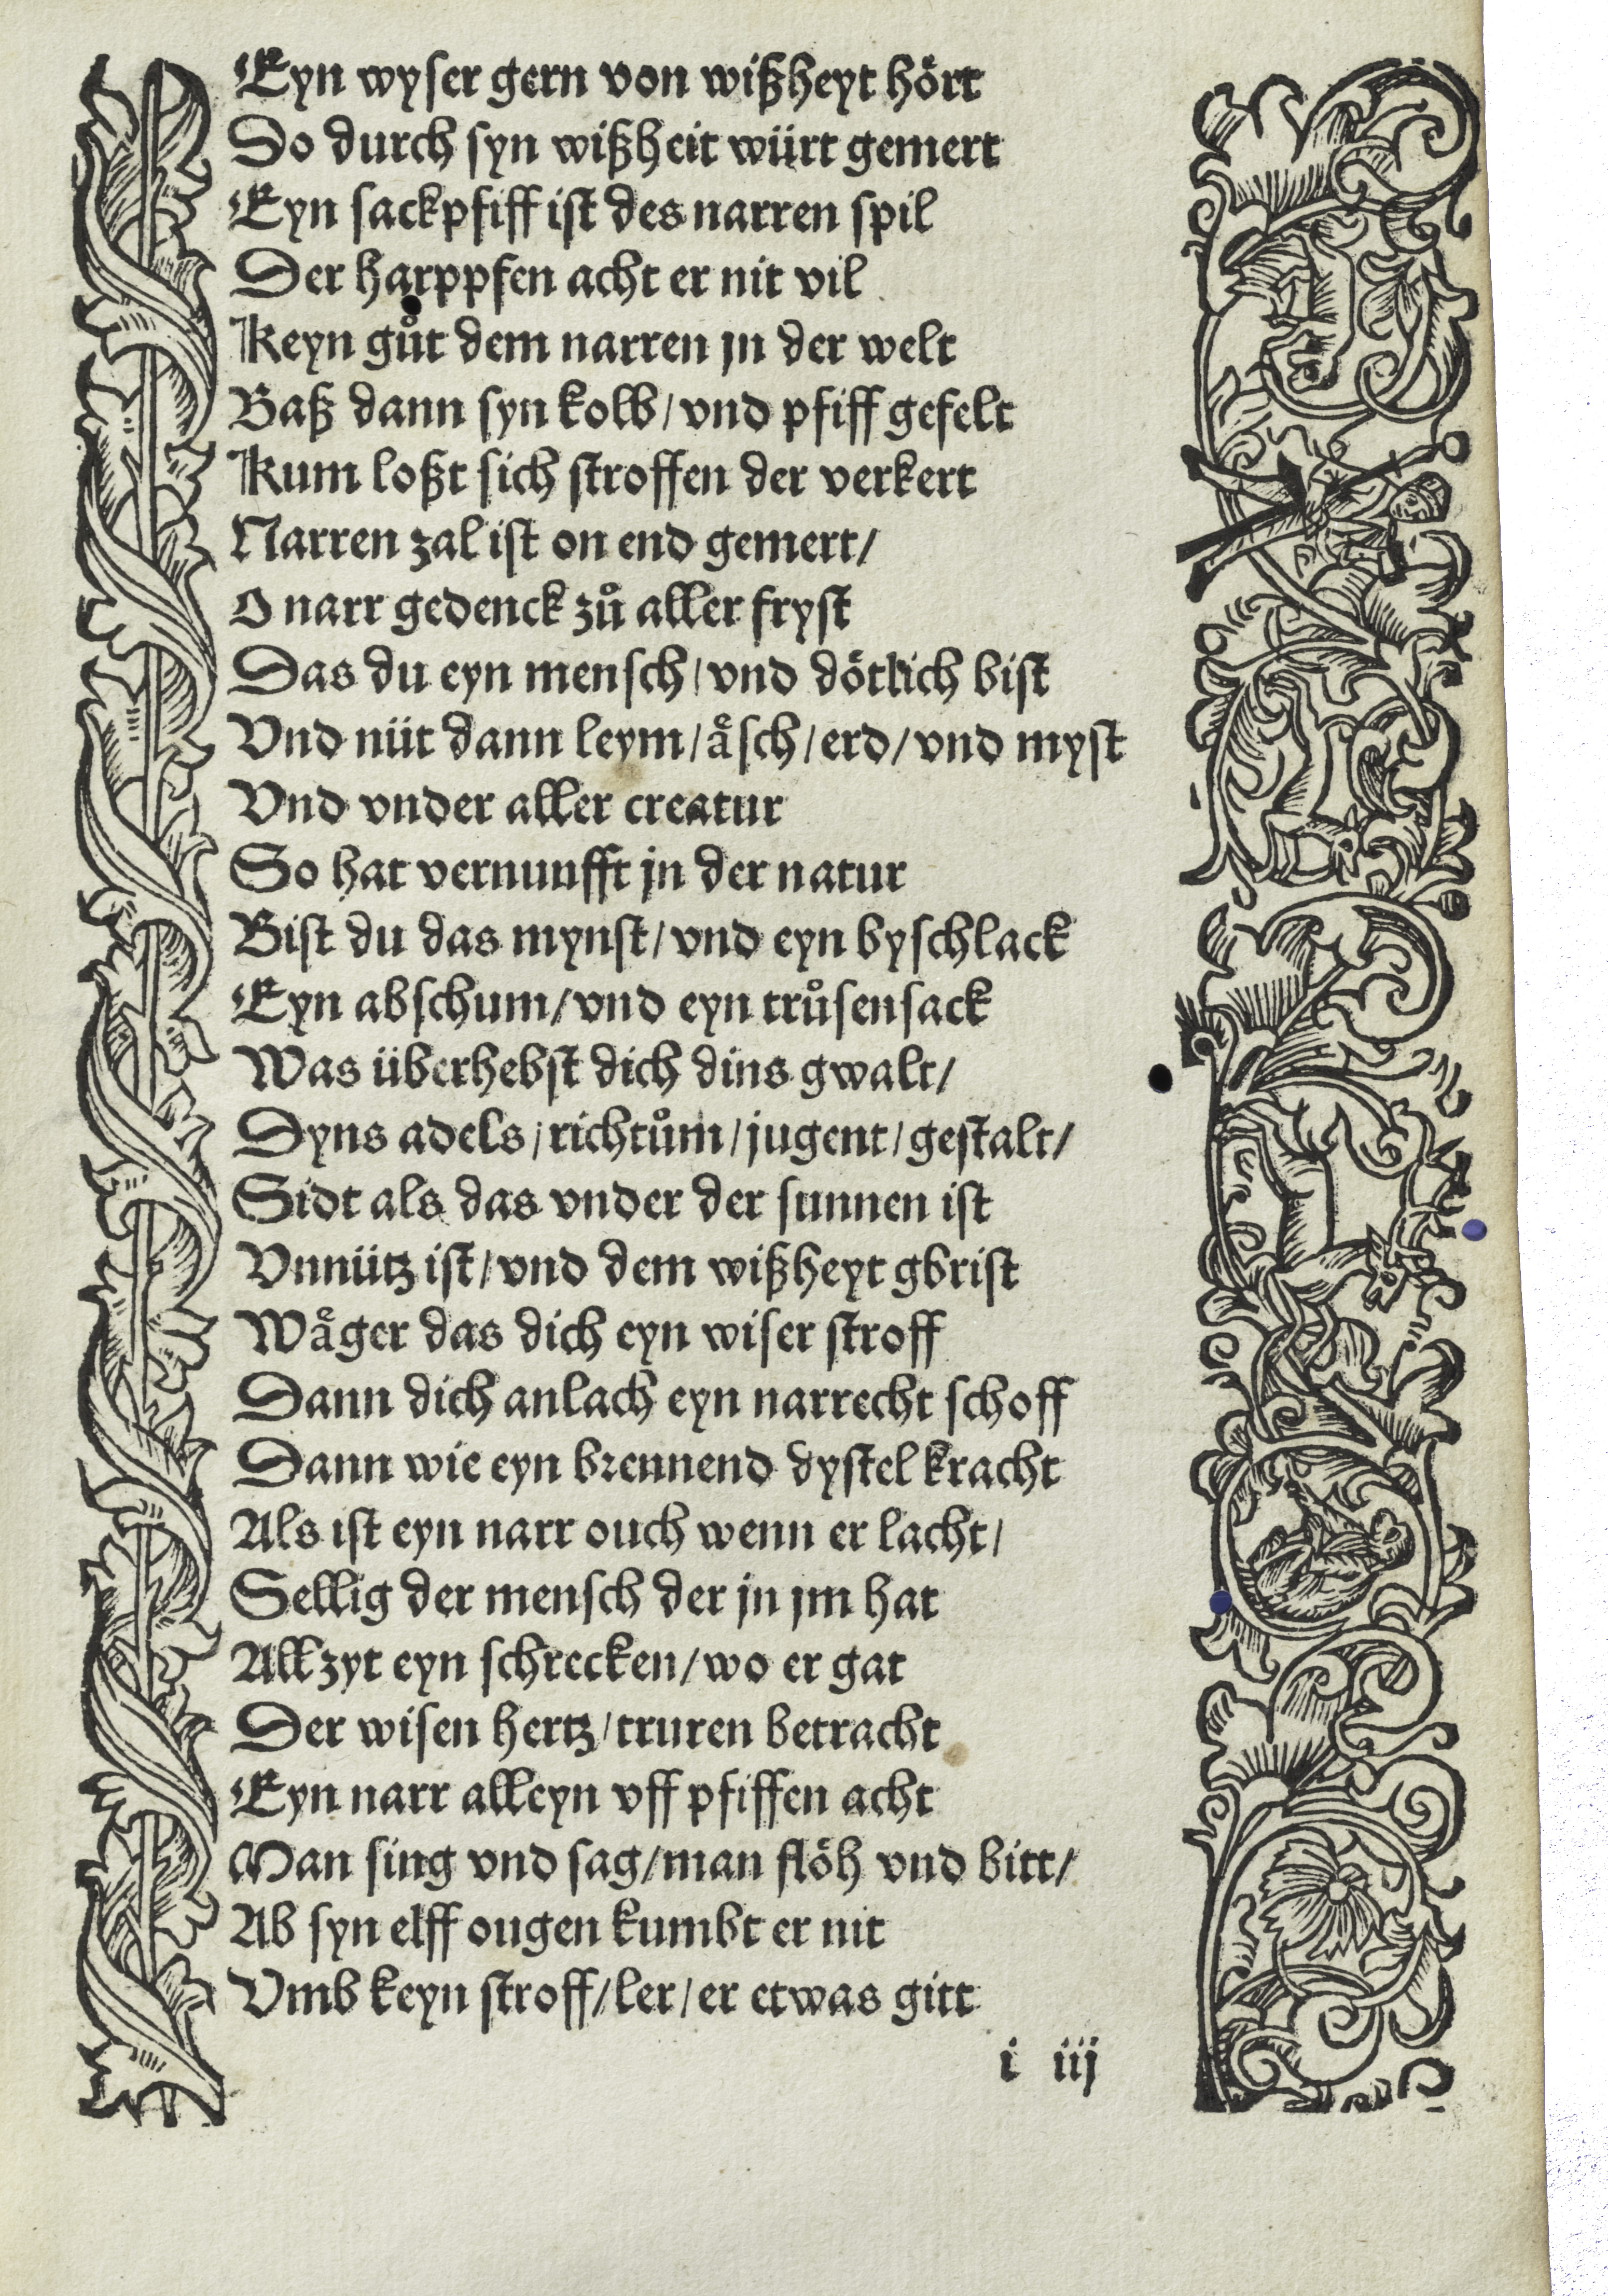 Eyn wyser gern von wißheyt hört
Do durch syn wißheit würt gemert
Eyn sackpfiff ist des narren spil
Der harppfen acht er nit vil
Keyn gůt dem narren jn der welt
Baß dann syn kolb/vnd pfiff gefelt
Kum loßt sich stroffen der verkert
Narren zal ist on end gemert/
O narr gedenck zů aller fryst
Das du eyn mensch/vnd dötlich bist
Vnd nüt dann leym/aͤsch/erd/vnd myst
Vnd vnder aller creatur
So hat vernunfft jn der natur
Bist du das mynst/vnd eyn byschlack
Eyn abschum/vnd eyn trůsensack
Was überhebst dich dins gwalt/
Dyns adels/richtům/jugent/gestalt/
Sidt als das vnder der sunnen ist
Vnnütz ist/vnd dem wißheyt gbrist
Waͤger das dich eyn wiser stroff
Dann dich anlach eyn narrecht schoff
Dann wie eyn brennend dystel kracht
Als ist eyn narr ouch wenn er lacht/
Sellig der mensch der jn jm hat
Allzyt eyn schrecken/wo er gat
Der wisen hertz/truren betracht
Eyn narr alleyn vff pfiffen acht
Man sing vnd sag/man flöh vnd bitt/
Ab syn elff ougen kumbt er nit
Vmb keyn stroff/ler/er etwas gitt
i iij